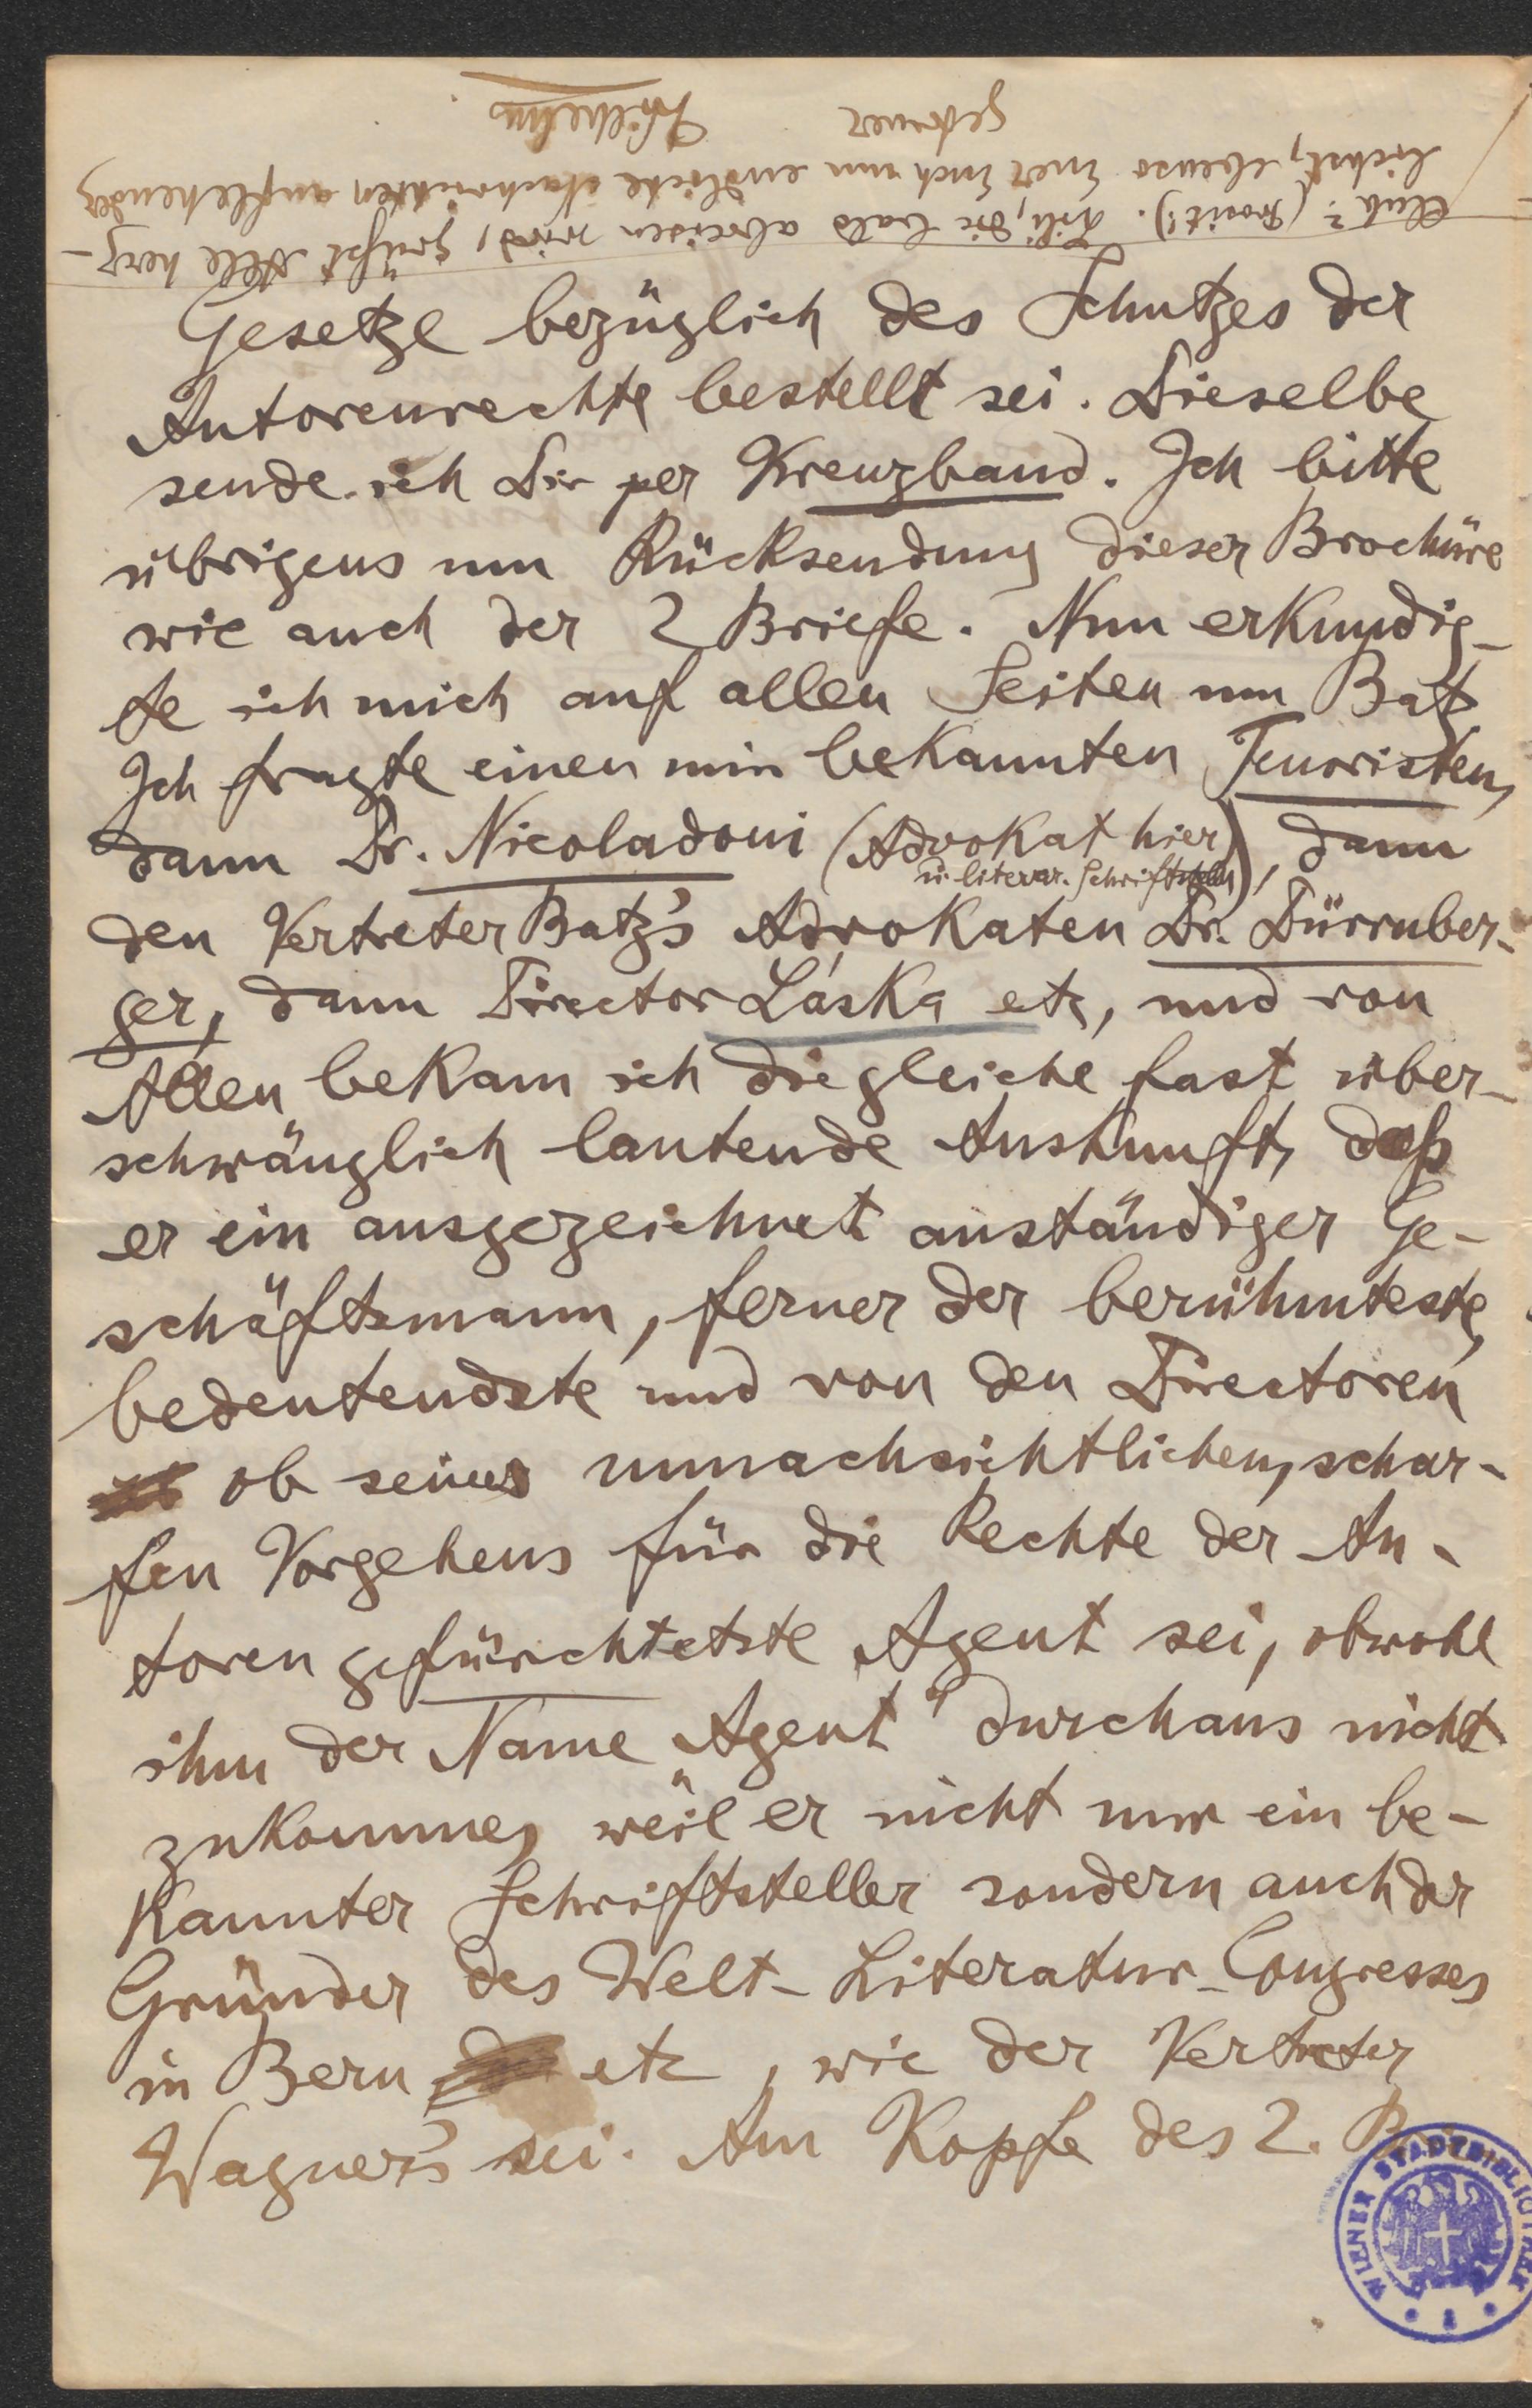 Club? (Prosit!). Lili, die bald abreisen wird, grüßt Alle herz-
lichst, ebenso Euer Euch um endliche Nachrichten anflehender
getreuer
Wilhelm.
Gesetze bezüglich des Schutzes der
Autorenrechte bestellt sei. Dieselbe
sende ich Dir per Kreuzband. Ich bitte
übrigens um Rücksendung dieser Brochüre
wie auch der 2 Briefe. Nun erkundig-
te ich mich auf allen Seiten um Batz
Ich fragte einen mir bekannten Tenoristen,
dann Dr. Nicoladoni (Advokat hier
u. literar. Schriftsteller), dann
den Vertreter Batz's Advokaten Dr. Dürrnber-
ger, dann Director Láska etc, und von
Allen bekam ich die gleiche fast über-
schwänglich lautende Auskunft, daß
er ein ausgezeichnet anständiger Ge-
schäftsmann, ferner der berühmteste,
bedeutendste und von den Directoren
ob seines unnachsichtlichen, schar-
fen Vorgehens für die Rechte der Au-
toren gefürchtetste Agent sei, obwohl
ihm der Name „Agent" durchaus nicht
zukomme, weil er nicht nur ein be-
kannter Schriftsteller sondern auch der
Gründer des Welt-Literatur-Congresses
in Bern etc, wie der Vertreter
Wagner's sei. Am Kopfe des 2.
WIENER STADTBIBLIOTHEK